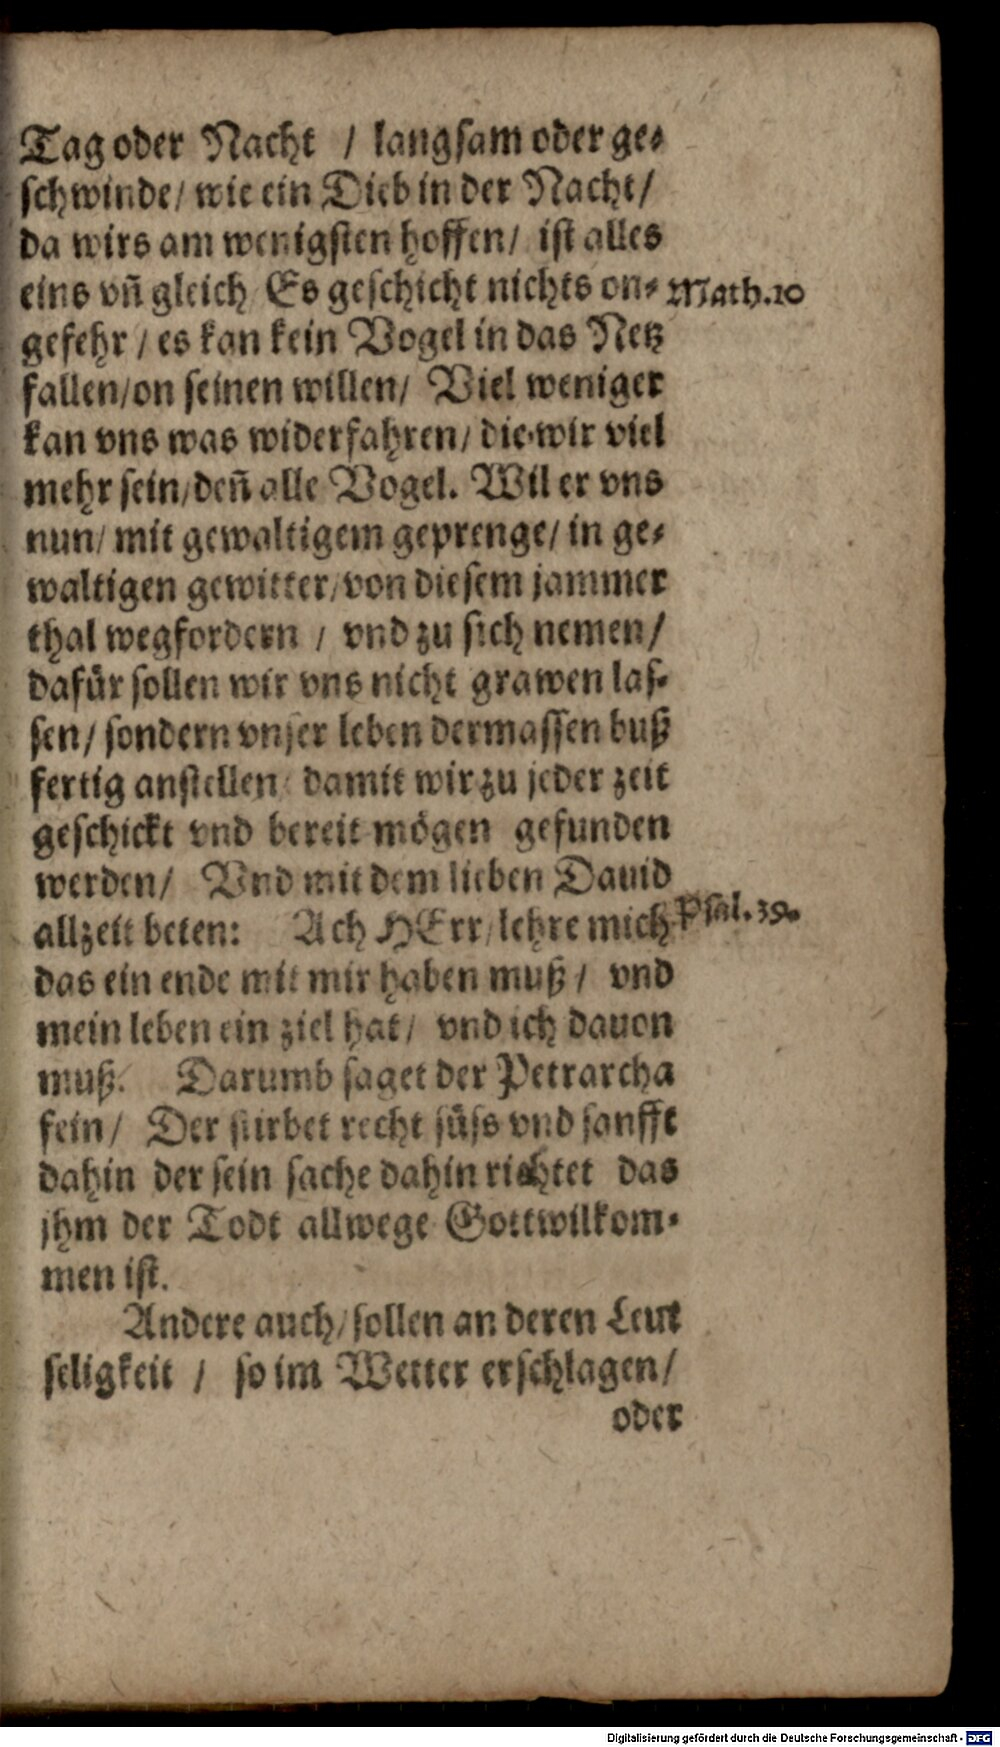 Tag oder Nacht / langsam oder ge⸗
schwinde/ wie ein Dieb in der Nacht/
da wirs am wenigsten hoffen/ ist alles
eins vñ gleich Es geschicht nichts on⸗ Math.10
gefehr / es kan kein Vogel in das Netz
fallen/on seinen willen/ Viel weniger
kan vns was widerfahren/ die wir viel
mehr sein/deñ alle Vogel. Wil er vns
nun/ mit gewaltigem geprenge/ in ge⸗
waltigen gewitter/von diesem jammer
thal wegfordern / vnd zu sich nemen/
dafür sollen wir vns nicht grawen las⸗
sen/ sondern vnser leben dermassen buß
fertig anstellen/ damit wir zu jeder zeit
geschickt vnd bereit mögen gefunden
werden/ Vnd mit dem lieben Dauid
allzeit beten: Ach HErr/lehre mich Psal.39.
das ein ende mit mir haben muß / vnd
mein leben ein ziel hat/ vnd ich dauon
muß. Darumb saget der Petrarcha
fein/ Der stirbet recht süss vnd sanfft
dahin der sein sache dahin richtet das
jhm der Todt allwege Gottwilkom⸗
men ist.
Andere auch/sollen an deren Leut
seligkeit / so im Wetter erschlagen/
oder
Digitalisierung gefördert durch die Deutsche Forschungsgemeinschaft - DFG